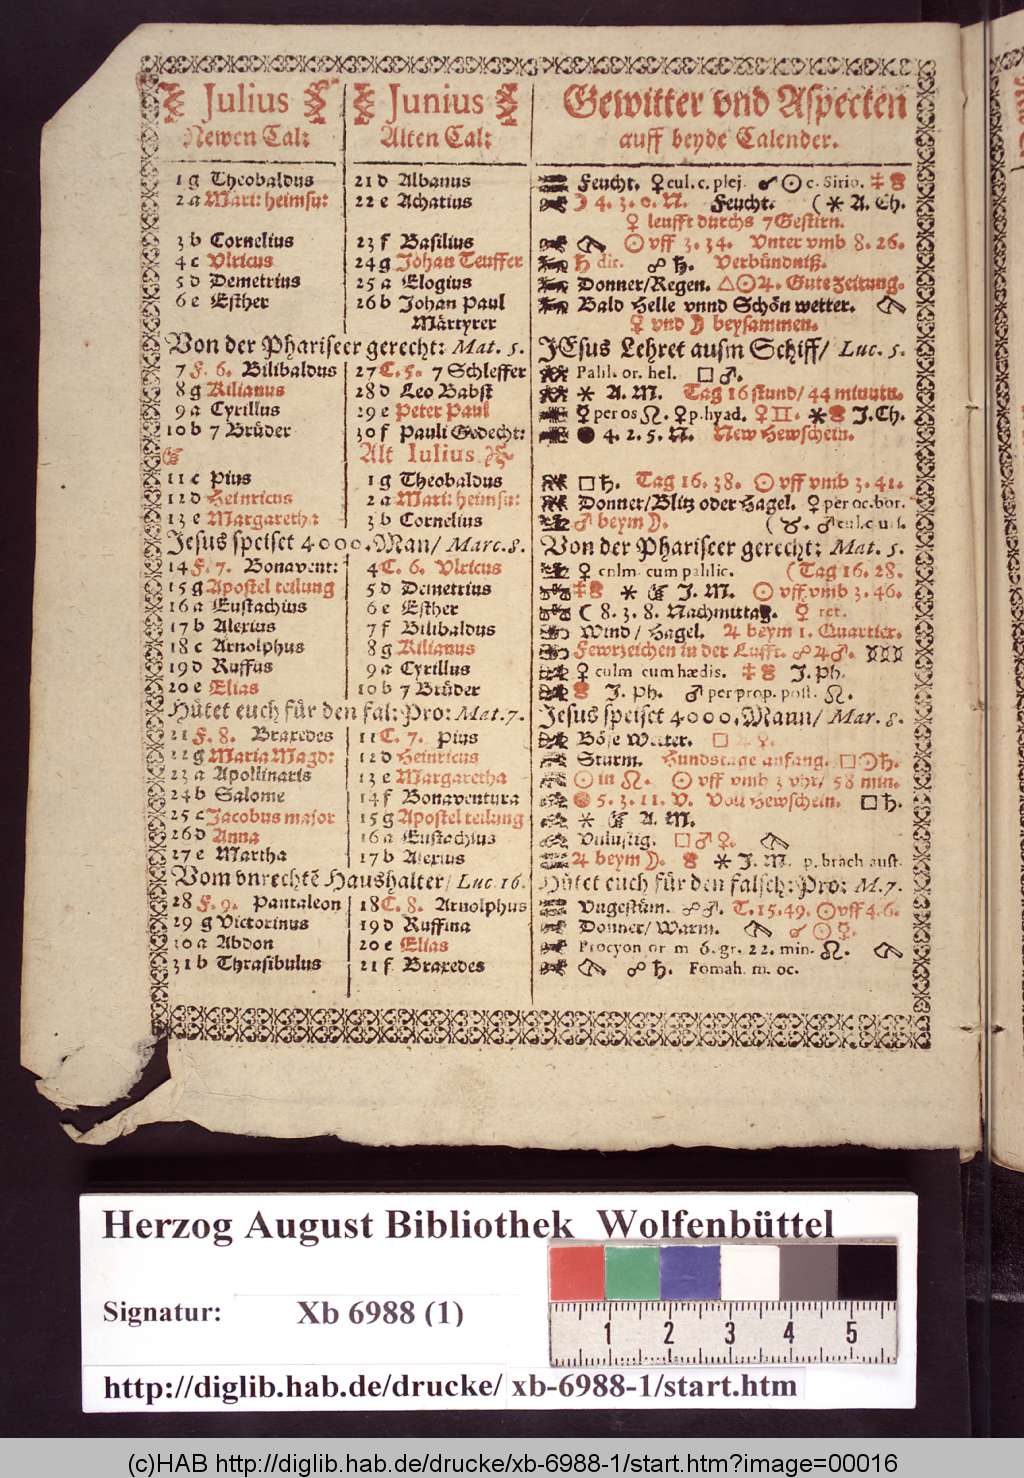 Julius Junius Gewitter vnd Aspecten
Newen Cal: Alten Cal: auff beyde Calender.
1 g Theobaldus 21 d Albanus Feucht. ♀ cul. c. plej. ☌ ☉ c. Sirio.
2 a Mari: heimsu: 22 e Achatius ☽ 4. 3. 0. N. Feucht. ( ⚹ A. Ch.
♀ leufft durchs 7 Gestirn.
3 b Cornelius 23 f Basilius ☉ vff 3. 34. Vnter vmb 8. 26.
4 c Vlricus 24 g Johan Teuffer ♄ dir. ☍ ♄. Verbündniß.
5 d Demetrius 25 a Elogius Donner/Regen. △ ☉ ♃. Gute Zeitung.
6 e Esther 26 b Johan Paul Bald Helle vnnd Schön wetter.
Märtyrer ♀ vnd ☽ beysammen.
Von der Phariseer gerecht: Mat. 5. JEsus Lehret ausm Schiff/ Luc. 5.
7 F. 6. Bilibaldus 27 C. 5. 7 Schleffer Palil. or. hel. □ ♂.
8 g Kilianus 28 d Leo Babst ⚹ A. M. Tag 16 stund/ 44 minutn.
9 a Cyrillus 29 e Peter Paul ☿ per os ♌. ♀ p. hyad. ♀ ♊. ⚹ J. Ch.
10 b 7 Brüder 30 f Pauli Gedecht: ● 4. 2. 5. N. New Hewschein.
Alt Iulius
11 c Pius 1 g Theobaldus □ ♄. Tag 16. 38. ☉ vff vmb 3. 41.
12 d Heinricus 2 a Mari: heimsu: Donner/Blitz oder Hagel. ♀ per oc. bor.
13 e Margaretha 3 b Cornelius ♂ beym ☽. ( ♉. ♂
Jesus speiset 4000. Man/ Marc. 8. Von der Phariseer gerecht: Mat. 5.
14 F. 7. Bonavent: 4 C. 6. Vlricus ♀ culm. cum palilic. ( Tag 16. 28.
15 g Apostel teilung 5 d Demetrius ⚹ J. M. ☉ vff vmb 3. 46.
16 a Eustachius 6 e Esther ☾ 8. 3. 8. Nachmittag. ☿ ret.
17 b Alexius 7 f Bilibaldus Wind/ Hagel. ♃ beym 1. Quartier.
18 c Arnolphus 8 g Kilianus Fewrzeichen in der Lufft. ☍ ♃ ♂.
19 d Ruffus 9 a Cyrillus ♀ culm cum hædis. J. Ph.
20 e Elias 10 b 7 Brüder J. Ph. ♂ per prop. poll. ♌.
Hütet euch für den fal: Pro: Mat. 7. Jesus speiset 4000. Mann/ Mar. 8.
21 F. 8. Braxedes 11 C. 7. Pius Böse Wetter. □ ♃ ♀.
22 g Maria Magd: 12 d Heinricus Sturm. Hundstage anfang. □ ☉ ♄.
23 a Apollinaris 13 e Margaretha ☉ in ♌. ☉ vff vmb 3 vhr/ 58 min.
24 b Salome 14 f Bonaventura 5. 3. 11. V. Voll Hewschein. □ ♄.
25 c Jacobus major 15 g Apostel teilung ⚹ A. M.
26 d Anna 16 a Eustachius Vnlustig. □ ♂ ♀.
27 e Martha 17 b Alexius ♃ beym ☽. ⚹ J. M. p. brach aust.
Vom vnrechtē Haushalter/ Luc. 16. Hütet euch für den falsch: Pro: M. 7.
28 F. 9. Pantaleon 18 C. 8. Arnolphus Vngestüm. ☍ ♂. T. 15. 49. ☉ vff 4. 6.
29 g Victorinus 19 d Ruffina Donner/ Warm. ☌ ☉ ☿.
30 a Abdon 20 e Elias Procyon or m 6. gr. 22. min. ♌.
31 b Thrasibulus 21 f Braxedes ☍ ♄. Fomah. m. oc.
Herzog August Bibliothek Wolfenbüttel
Signatur: Xb 6988 (1)
1 2 3 4 5
http://diglib.hab.de/drucke/ xb-6988-1/start.htm
(c)HAB http://diglib.hab.de/drucke/xb-6988-1/start.htm?image=00016